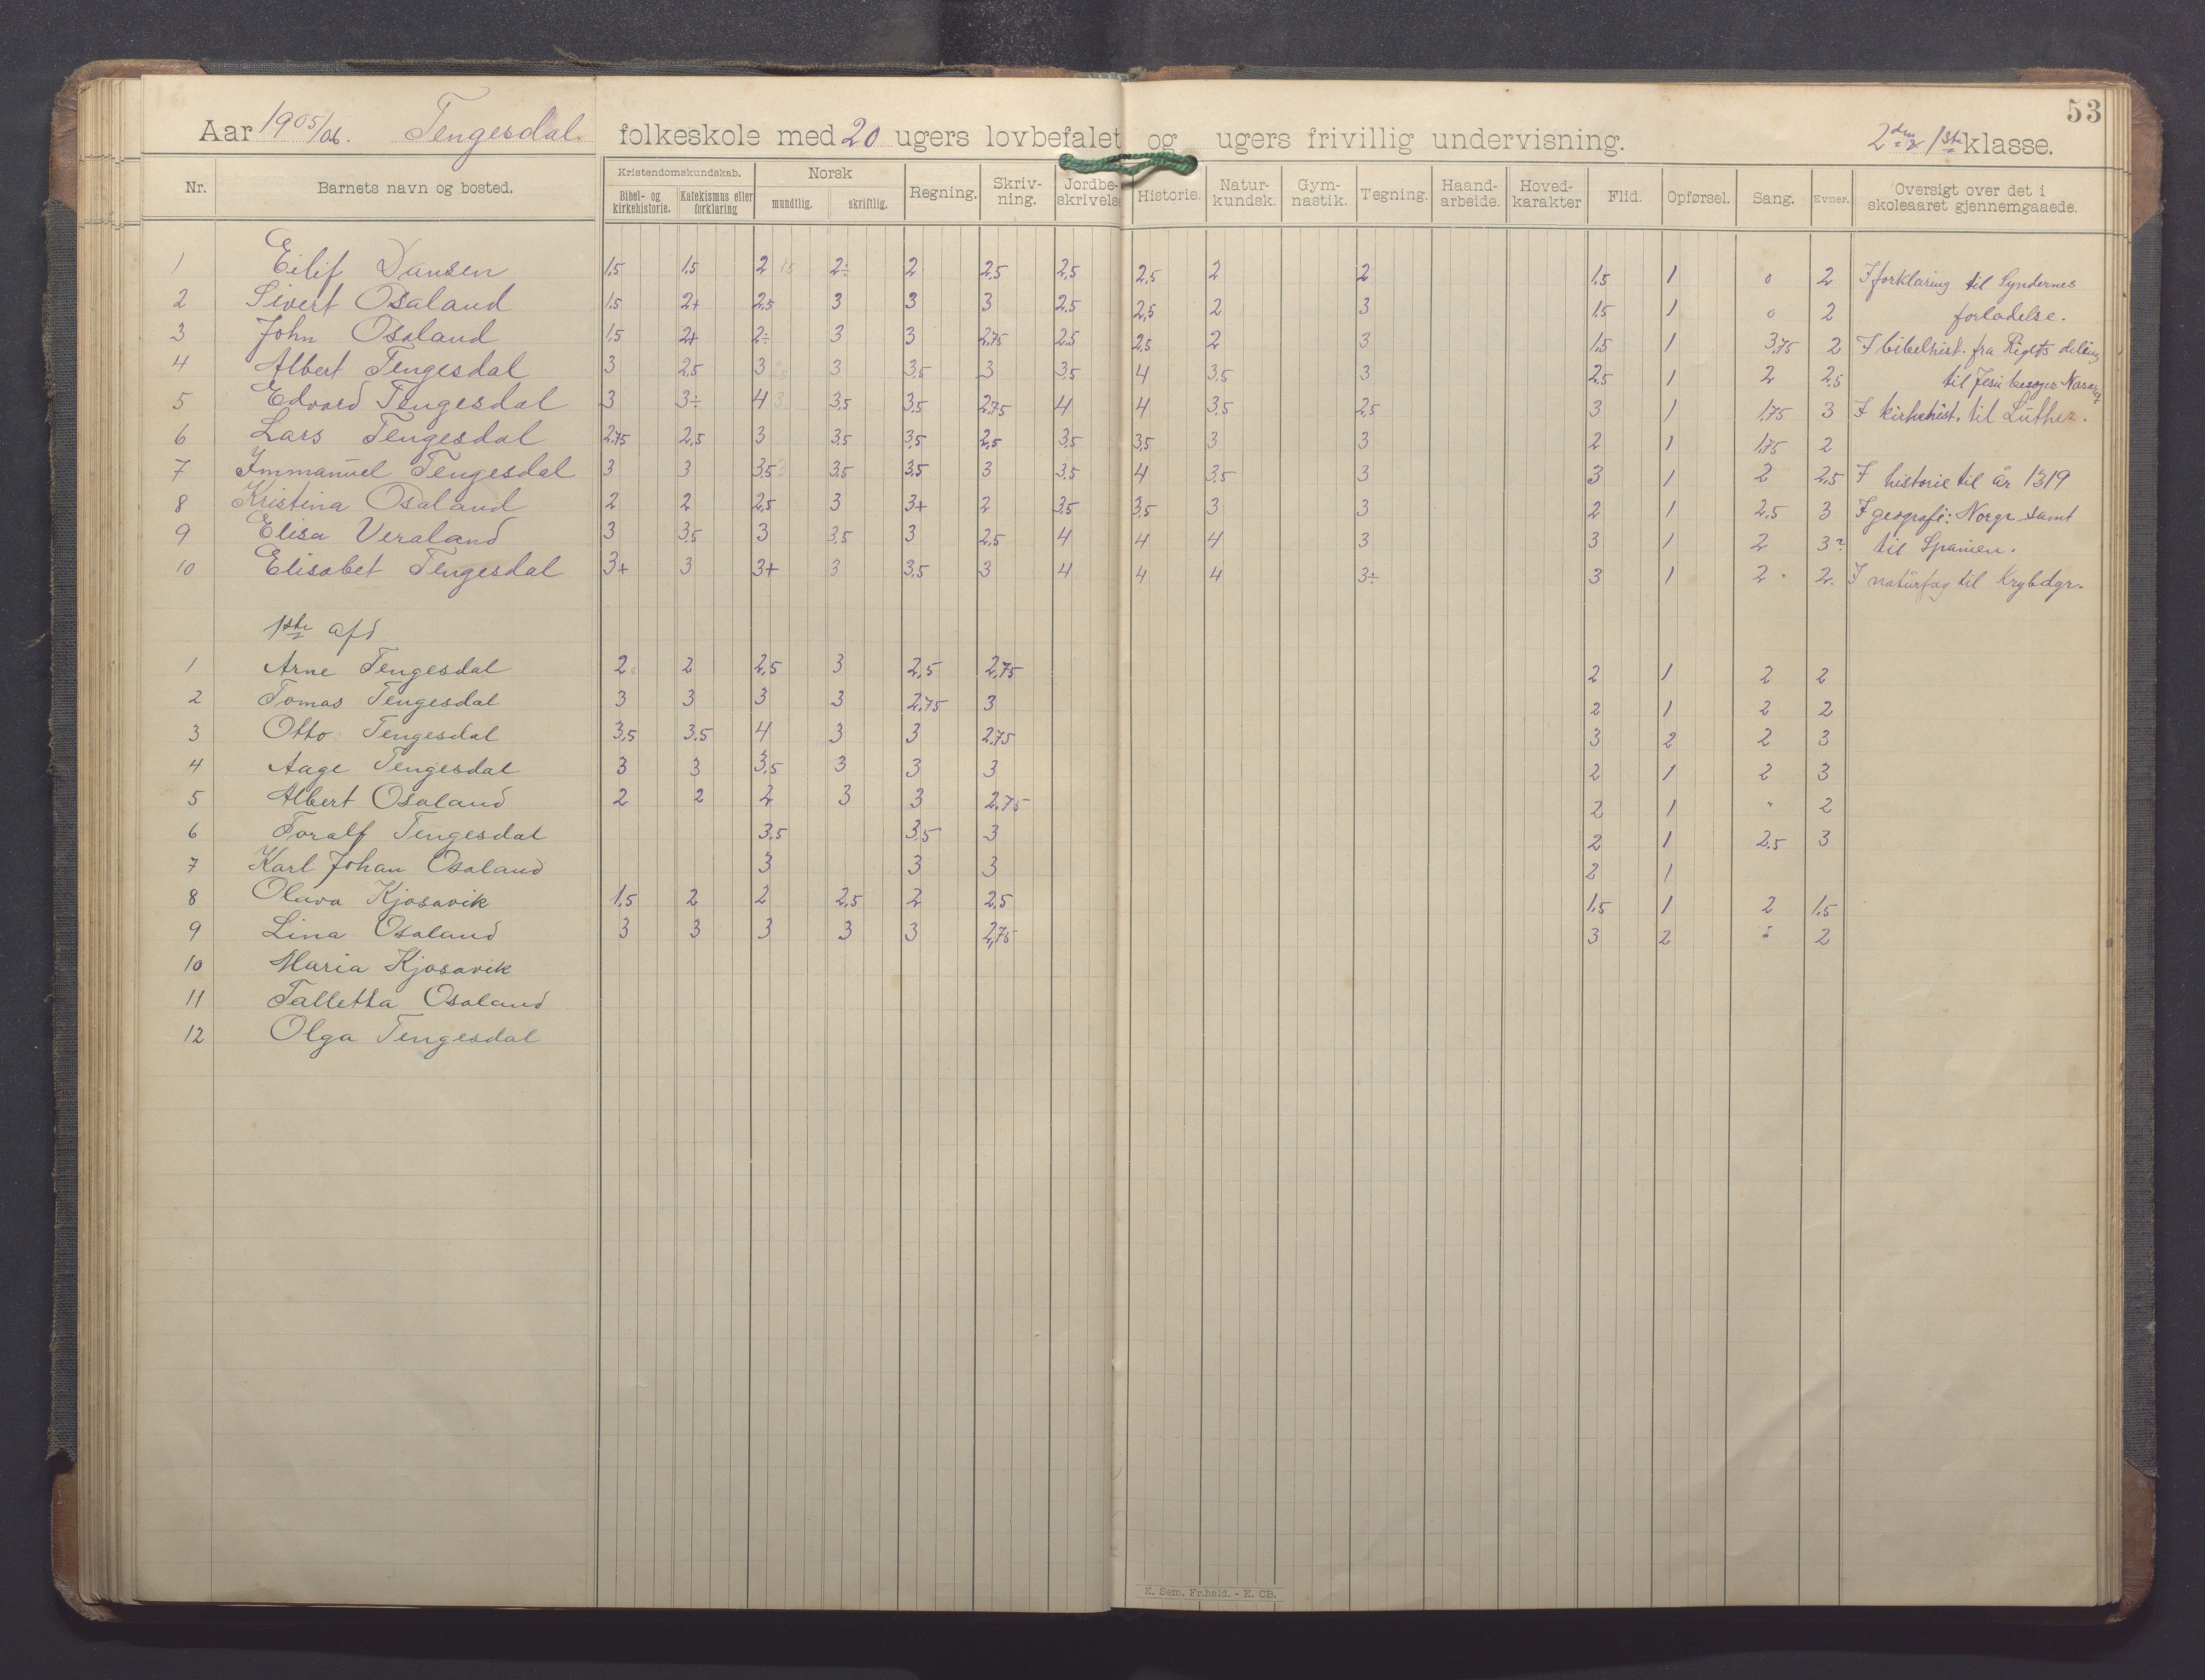 53
Aar 1905/06. Tengesdal folkeskole med 20 ugers lovbefalet og ugers frivillig undervisning. 2den & 1ste klasse.
Nr. Barnets navn og bosted. Kristendomskundskab. Bibel- og kirkehistorie. Katekismus eller forklaring Norsk mundtlig. skriftlig. Regning. Skriv-ning. Jordbe-skrivels Historie. Natur-kundsk. Gym-nastik. Tegning. Haand-arbeide. Hoved-karakter Flid. Opførsel. Sang. Evner. Oversigt over det i skoleaaret gjennemgaaede.
1 Eilif Dansen 1,5 1,5 2 1,5 2÷ 2 2,5 2,5 2,5 2 2 1,5 1 0 2 I forklaring til Syndernes
2 Sivert Osaland 1,5 2+ 2,5 3 3 3 2,5 2,5 2 3 1,5 1 0 2 forladelse.
3 John Osaland 1,5 2+ 2÷ 3 3 2,75 2,5 2,5 2 3 1,5 1 3,75 2 I bibelhist. fra Rigets deling
4 Albert Tengesdal 3 2,5 3 3 3,5 3 3,5 4 3,5 3 2,5 1 2 2,5 til Jesu besøger Nasaret
5 Edvard Tengesdal 3 3÷ 4 3 3,5 3,5 2,75 4 4 3,5 2,5 3 1 1,75 3 I kirkehist. til Luther.
6 Lars Tengesdal 2,75 2,5 3 3,5 3,5 2,5 3,5 3,5 3 3 2 1 1,75 2
7 Immanuel Tengesdal 3 3 3,5 3 3,5 3,5 3 3,5 4 3,5 3 3 1 2 2,5 I historie til år 1319
8 Kristina Osaland 2 2 2,5 3 3+ 2 3,5 3,5 3 3 2 1 2,5 3 I geografi: Norge samt
9 Elisa Veraland 3 3,5 3 3,5 3 2,5 4 4 4 3 3 1 2 3? til Spanien.
10 Elisabet Tengesdal 3+ 3 3+ 3 3,5 3 4 4 4 3÷ 3 1 2 2. I naturfag til Krybdyr.
1ste afd
1 Arne Tengesdal 2 2 2,5 3 2,5 2,75 2 1 2 2
2 Tomas Tengesdal 3 3 3 3 2,75 3 2 1 2 2
3 Otto Tengesdal 3,5 3,5 4 3 3 2,75 3 2 2 3
4 Aage Tengesdal 3 3 3,5 3 3 3 2 1 2 3
5 Albert Osaland 2 2 2 3 3 2,75 2 1 " 2
6 Toralf Tengesdal 3,5 3,5 3 2 1 2,5 3
7 Karl Johan Osaland 3 3 3 2 1
8 Oluva Kjosavik 1,5 2 2 2,5 2 2,5 1,5 1 2 1,5
9 Lina Osaland 3 3 3 3 3 2,75 3 2 2
10 Maria Kjosavik
11 Talletta Osaland
12 Olga Tengesdal
E. Sem, Fr.hald. - E. CB.